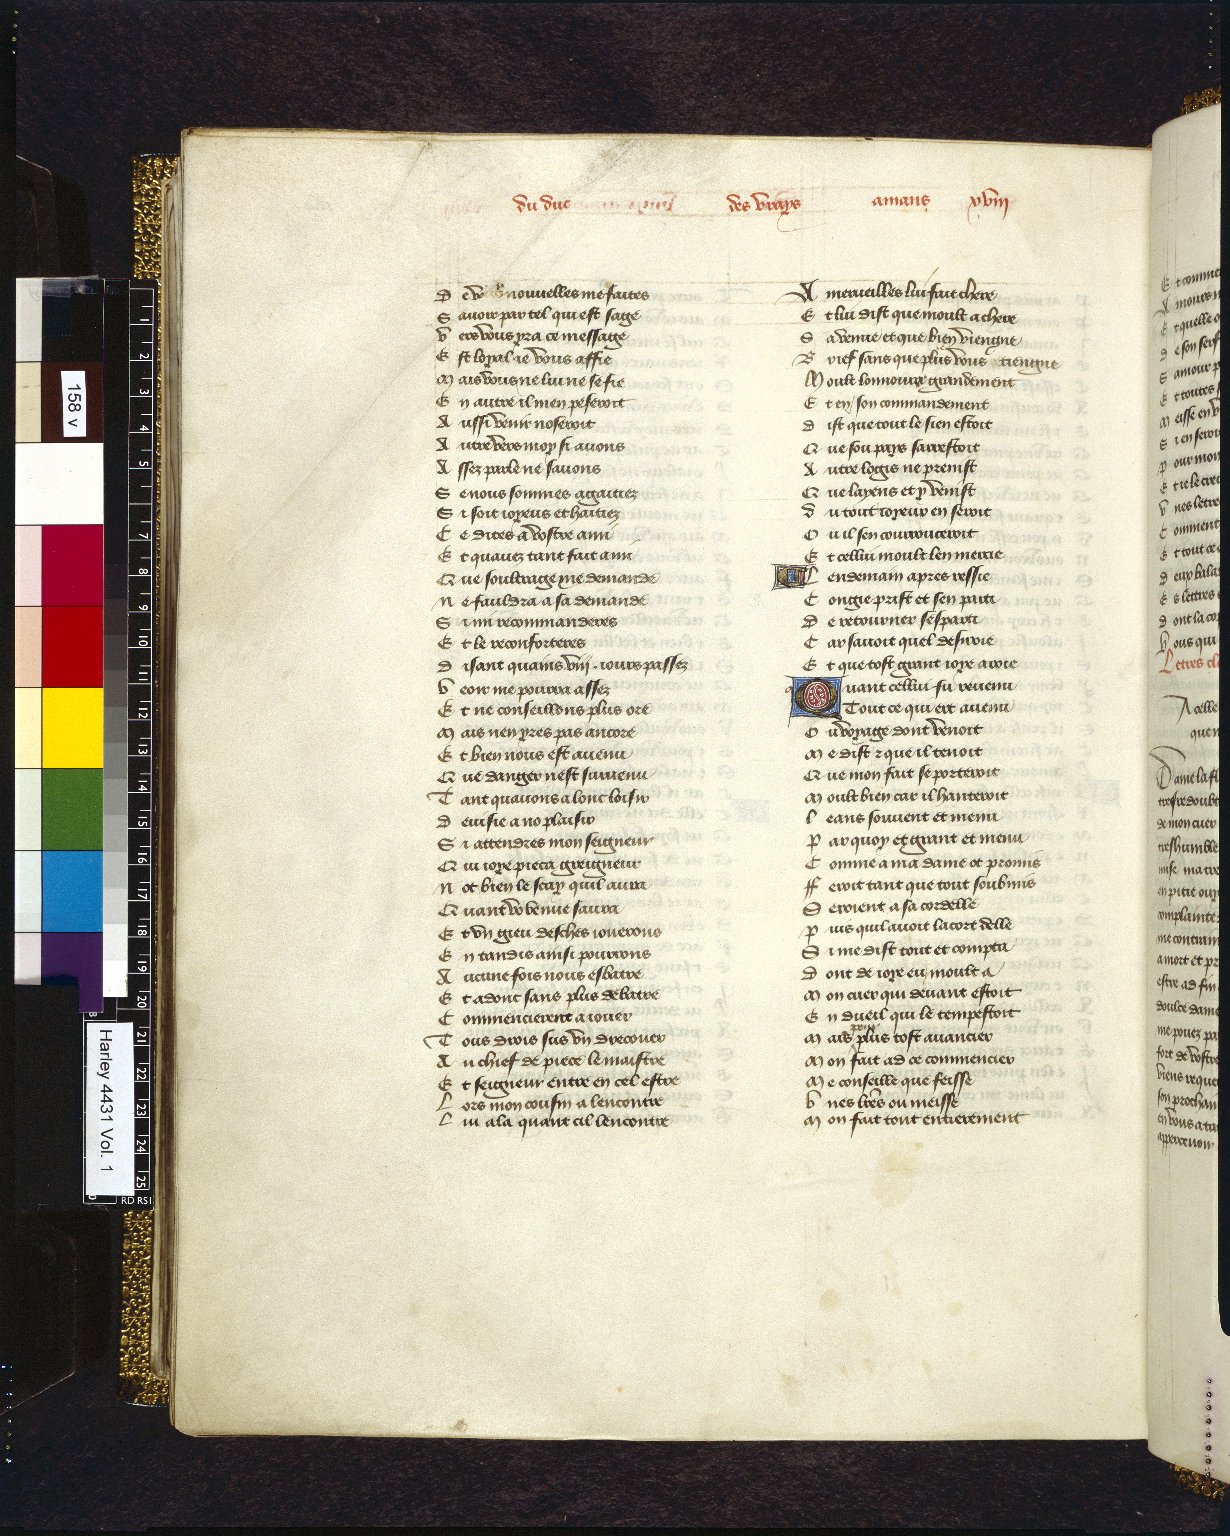 du duc des vrays amans xviii
De voz nouuelles me faites
Sauoir par tel qui est sage
Vers vous yra ce message
Est loyal ie vous affie
Mais vous ne lui ne se fie
En autre il men peseroit
Aussi venir noseroit
Autre vers moy si auons
Assez parle ne sauons
Se nous sommes agaitiez
Si soit ioyeus et haitiez
Ce dites a vostre ami
Et quauez tant fait a mi
Que soultrage me demande
Ne fauldra a sa demande
Si mi recommanderes
Et le reconforteres
Disant quains viij iours passez
Veoir me pourra assez
Et ne conseillons plus ore
Mais nen yres pas ancore
Et bien nous est auenu
Que danger nest suruenu
Tant quauons a lonc loisir
Deuisie a no plaisir
Si attendres mon seigneur
Qui ioye pieca greigneur
Not bien le scay quil aura
Quant vo venue saura
Et vn gieu desches iouerons
En tandis ainsi pourrons
Aucune fois nous esbatre
Et adonc sans plus debatre
Commencierent a iouer
Tous drois sus vn drecouer
Au chief de piece le maistre
Et seigneur entre en cel estre
Lors mon cousin a lencontre
Lui ala quant cil lencontre
A merueilles lui fait chere
Et lui dist que moult a chere
Sa venue et que bien viengne
Brief sans que plus vous tiengne
Moult lonnoure grandement
Et en son commandement
Dist que tout le sien estoit
Que sou pays sarrestoit
Autre logis ne prenist
Que layens et y venist
Du tout ioyeux en seroit
Ou il sen courrouceroit
Et cellui moult len mercie
Lendemain apres ressie
Congie prist et sen parti
De retourner sesparti
Car sauoit quel desiroie
Et que tost grant ioye aroie
Quant cellui fu reuenu
Tout ce qui ert auenu
Ou voyage dont venoit
Me dist et que il tenoit
Que mon fait se porteroit
Moult bien car il hanteroit
Leans souuent et menu
Par quoy et grant et menu
Comme a ma dame ot promis
Feroit tant que tout soubmis
Seroient a sa cordelle
Puis quil auoit lacort delle
Si me dist tout et compta
Dont de ioye eu moult a
Mon cuer qui deuant estoit
En dueil qui le tempestoit
Mais pour plus tost auancier
Mon fait ad ce commencier
Me conseille que feisse
Vnes lres ou meisse
Mon fait tout entierement
158 v
Harley 4431 Vol. 1